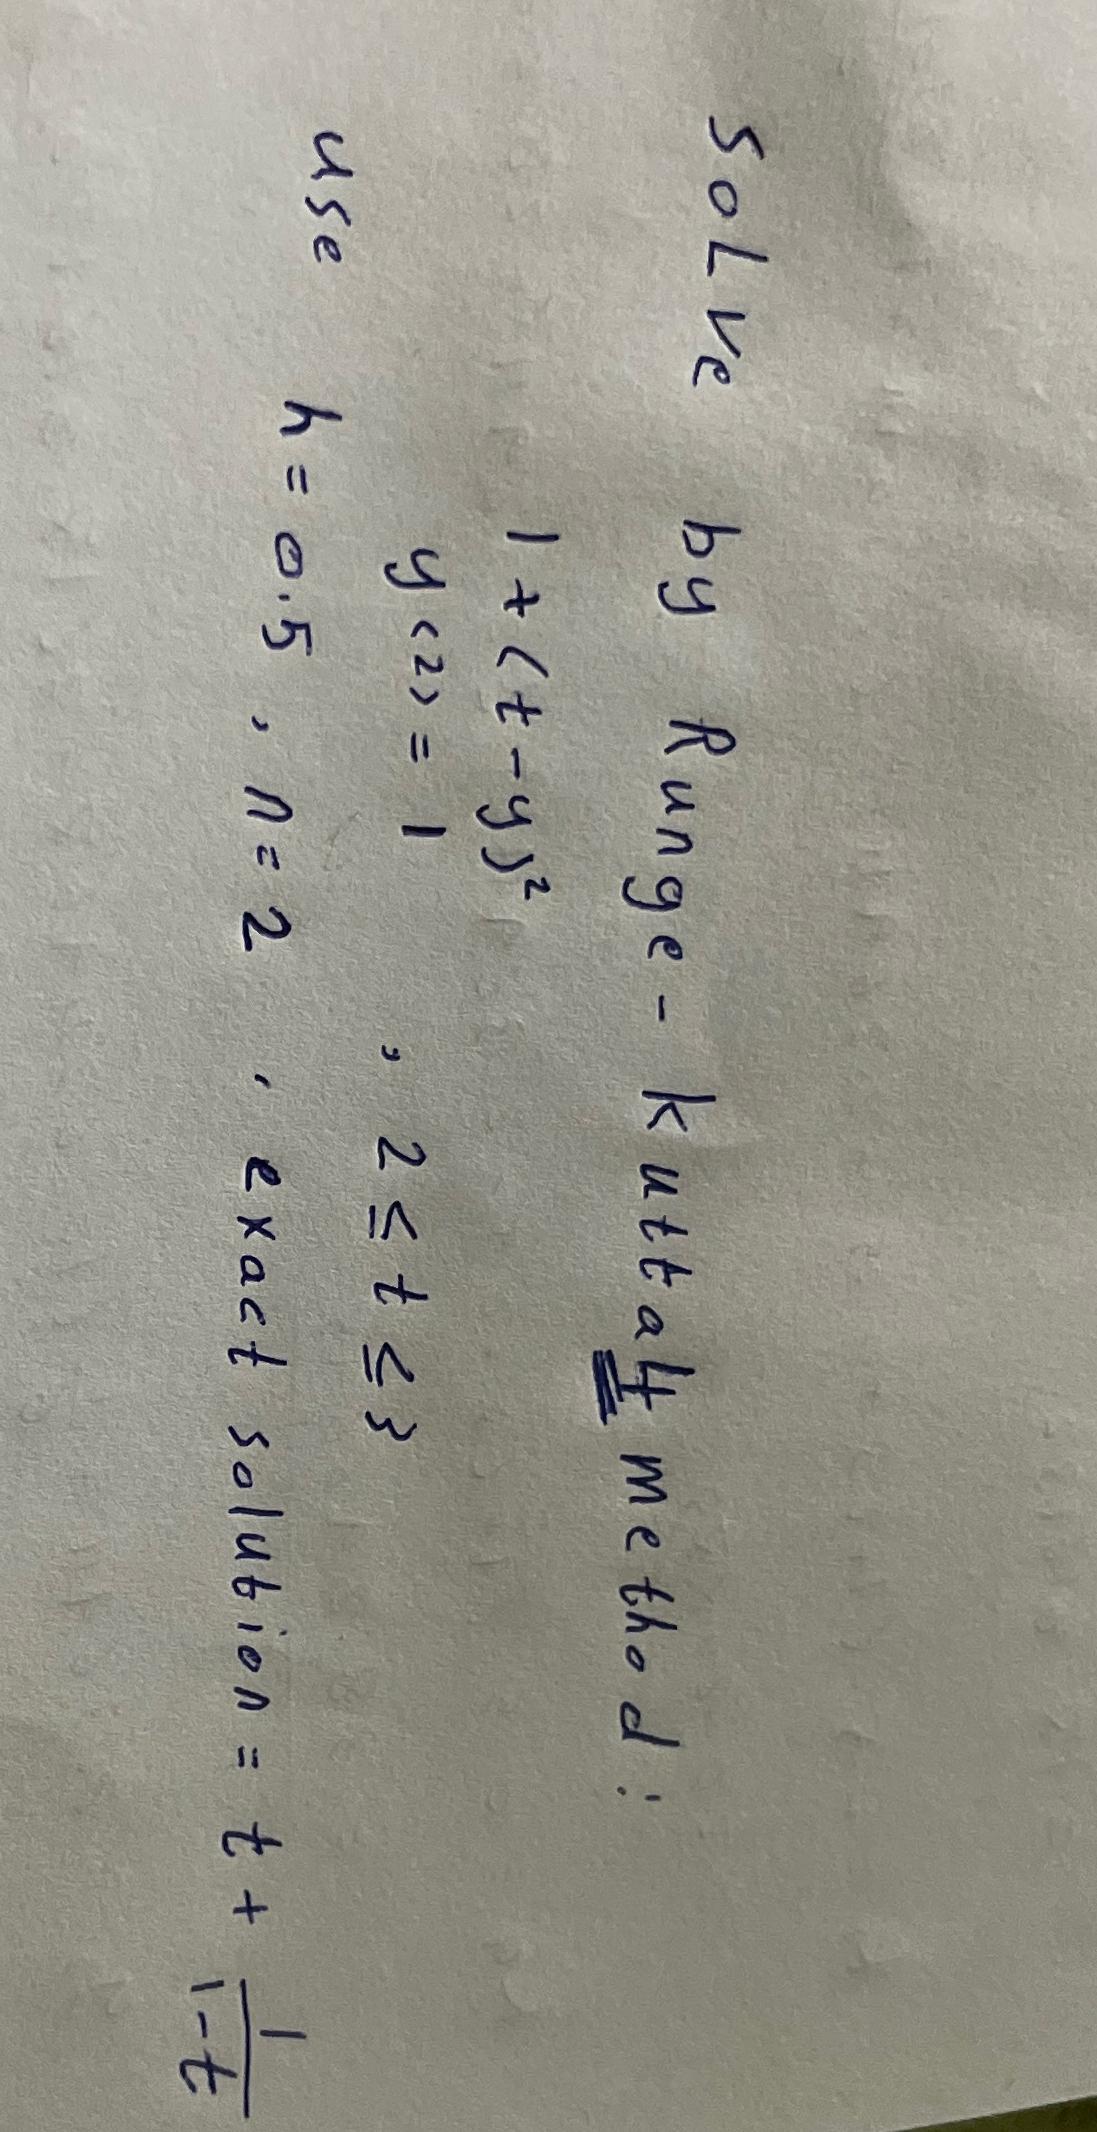 Solve by Runge-kutta4 method:
1+(t-y)²
y(2)=1 , 2≤t≤3
use h=0.5, n=2, exact solution = t+ 1/1-t